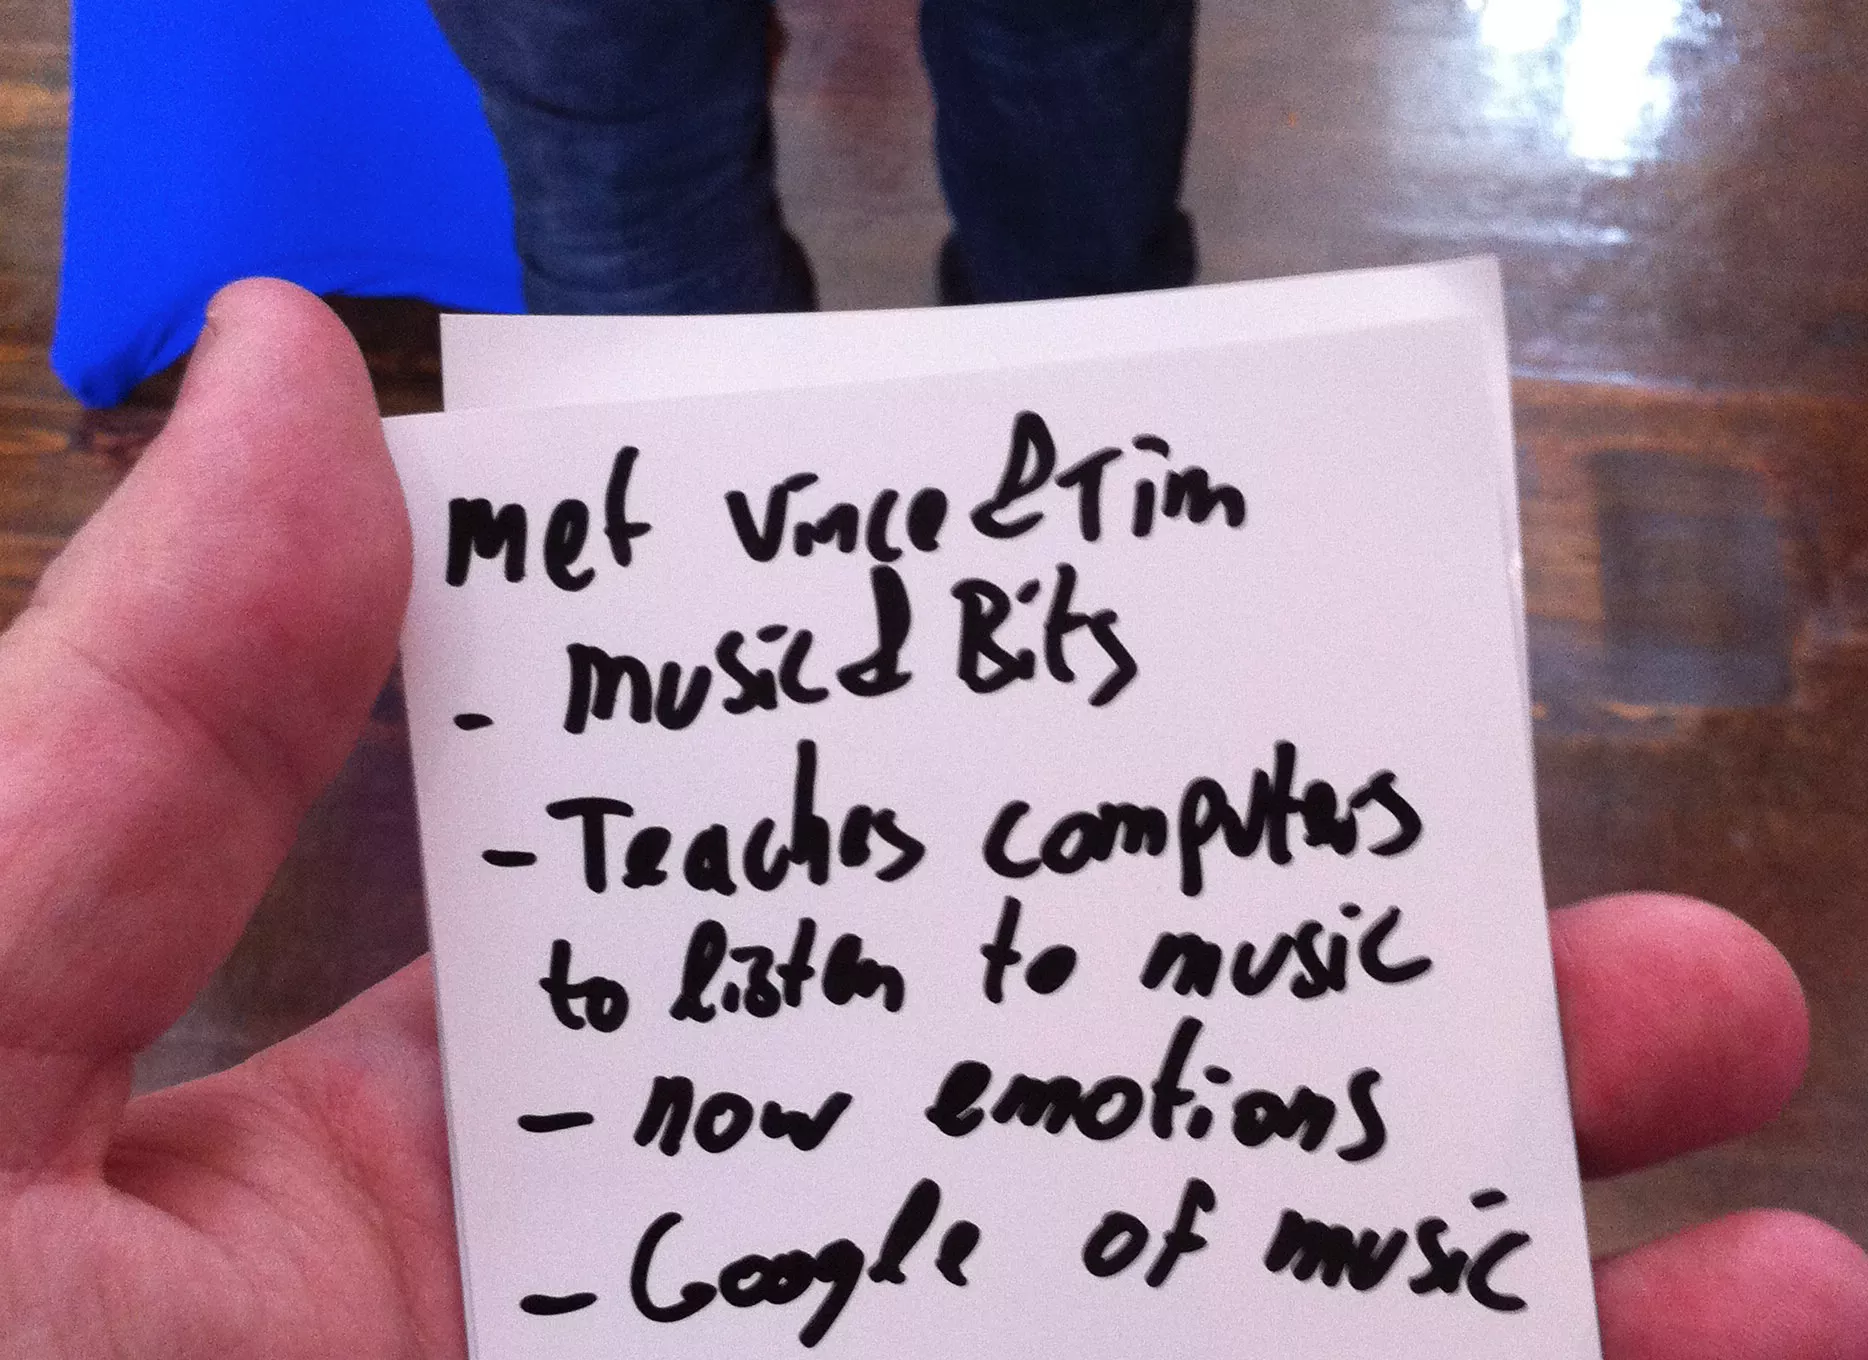 met Vince & Tim
- music & Bits
- Teaches computers
to listen to music
- now emotions
- Google of music